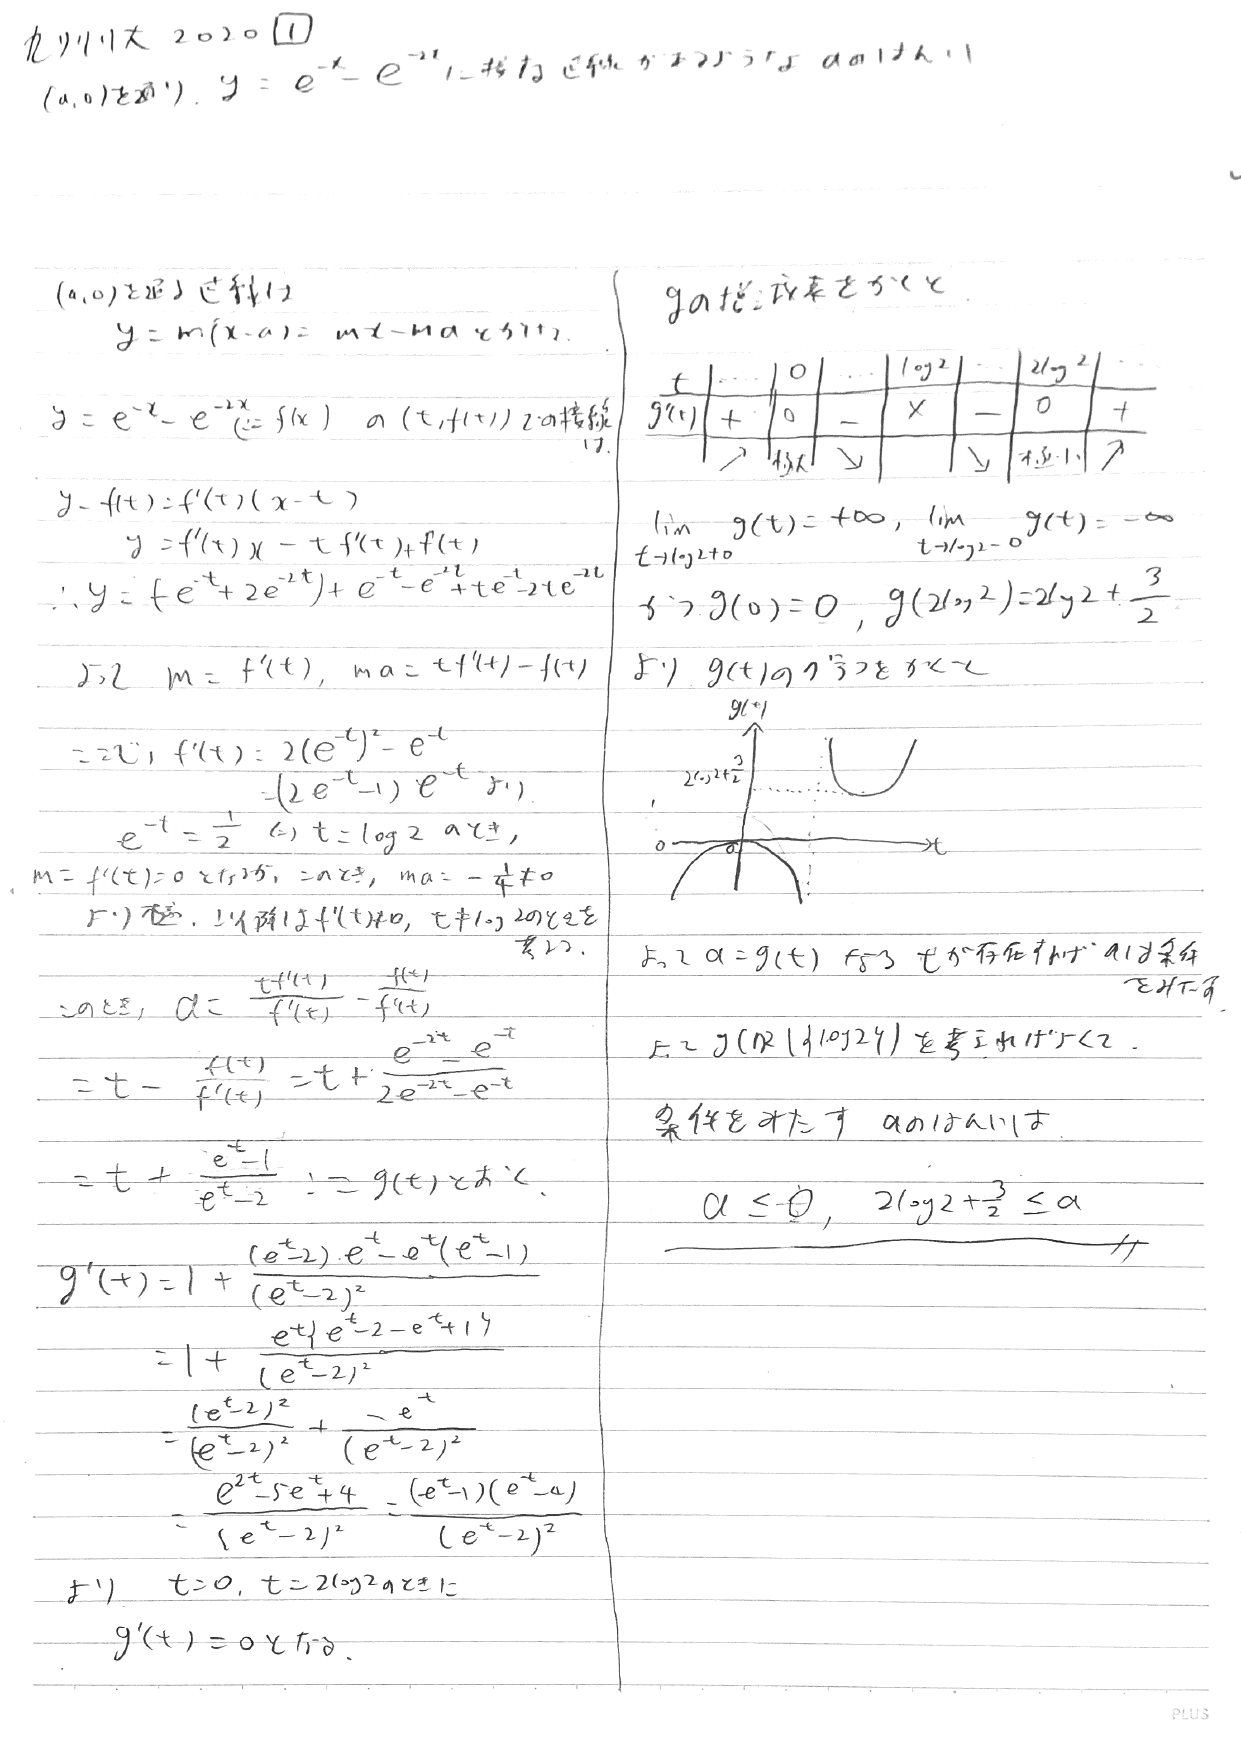 九州大 2020 1
(a,0)を通り、y = e^{-x} - e^{-2x} に接する直線があるような aのはんい
(a,0)を通る直線は
y = m(x-a) = mx - ma とかける.
y = e^{-x} - e^{-2x} (= f(x)) の (t, f(t)) での接線
は.
y - f(t) = f'(t)(x - t)
y = f'(t)x - tf'(t) + f(t)
∴ y = (-e^{-t} + 2e^{-2t}) + e^{-t} - e^{-2t} + te^{-t} - 2te^{-2t}
よって m = f'(t), ma = tf'(t) - f(t)
ここで, f'(t) = 2(e^{-t})^2 - e^{-t}
= (2e^{-t} - 1) e^{-t} より
e^{-t} = 1/2 (=) t = log2 のとき,
m = f'(t) = 0 となるが, このとき, ma = -1/4 ≠ 0
より不適. 以降は f'(t)≠0, t≠log2のときを
考える.
このとき, a = tf'(t)/f'(t) - f(t)/f'(t)
= t - f(t)/f'(t) = t + (e^{-2t} - e^{-t})/(2e^{-2t} - e^{-t})
= t + (e^t - 1)/(e^t - 2) := g(t) とおく.
g'(t) = 1 + ((e^t - 2)·e^t - e^t(e^t - 1))/(e^t - 2)^2
= 1 + e^t{e^t - 2 - e^t + 1}/(e^t - 2)^2
= (e^t - 2)^2/(e^t - 2)^2 + -e^t/(e^t - 2)^2
= (e^{2t} - 5e^t + 4)/(e^t - 2)^2 = (e^t - 1)(e^t - 4)/(e^t - 2)^2
より t = 0, t = 2log2のときに
g'(t) = 0 となる.
gの増減表をかくと
t … 0 … log2 … 2log2 …
g'(t) + 0 - × - 0 +
↗ 極大 ↘ ↘ 極小 ↗
lim_{t→log2+0} g(t) = +∞, lim_{t→log2-0} g(t) = -∞
かつ g(0) = 0, g(2log2) = 2log2 + 3/2
より g(t)のグラフをかくと
g(t)
2log2+3/2
0 0 t
よって a = g(t) なる tが存在すれば aは条件
をみたす
よって g(ℝ\{log2}) を考えればよくて.
条件をみたす aのはんいは
a ≤ 0, 2log2 + 3/2 ≤ a
PLUS